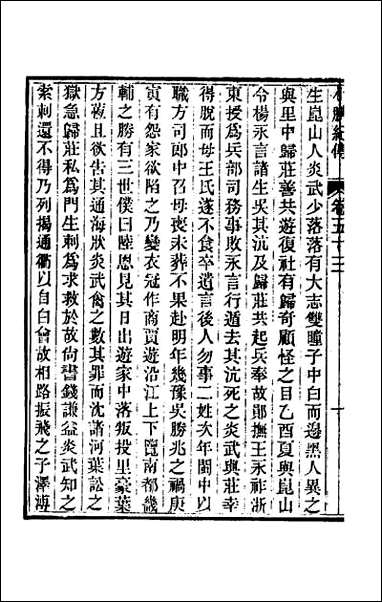 小腆紀傳 卷五十三 十
生崑山人炎武少落落有大志雙瞳子中白而邊黑人異之
與里中歸莊善共遊復社有歸奇顧怪之目乙酉夏與崑山
令楊永言諸生吳其沆及歸莊共起兵奉故鄖撫王永祚浙
東授爲兵部司務事敗永言行遁去其沆死之炎武與莊幸
得脫而母王氏遂不食卒遺言後人勿事二姓次年閩中以
職方司郎中召母喪未葬不果赴明年幾豫吳勝兆之禍庚
寅有怨家欲陷之乃變衣冠作商賈遊沿江上下覽南都畿
輔之勝有三世僕曰陸恩見其日出遊家中落叛投里豪葉
方蒞且欲告其通海狀炎武禽之數其罪而沈諸河葉訟之
獄急歸莊私爲門生刺爲求救於故尚書錢謙益炎武知之
索刺還不得乃列揭通衢以自白會故相路振飛之子澤溥